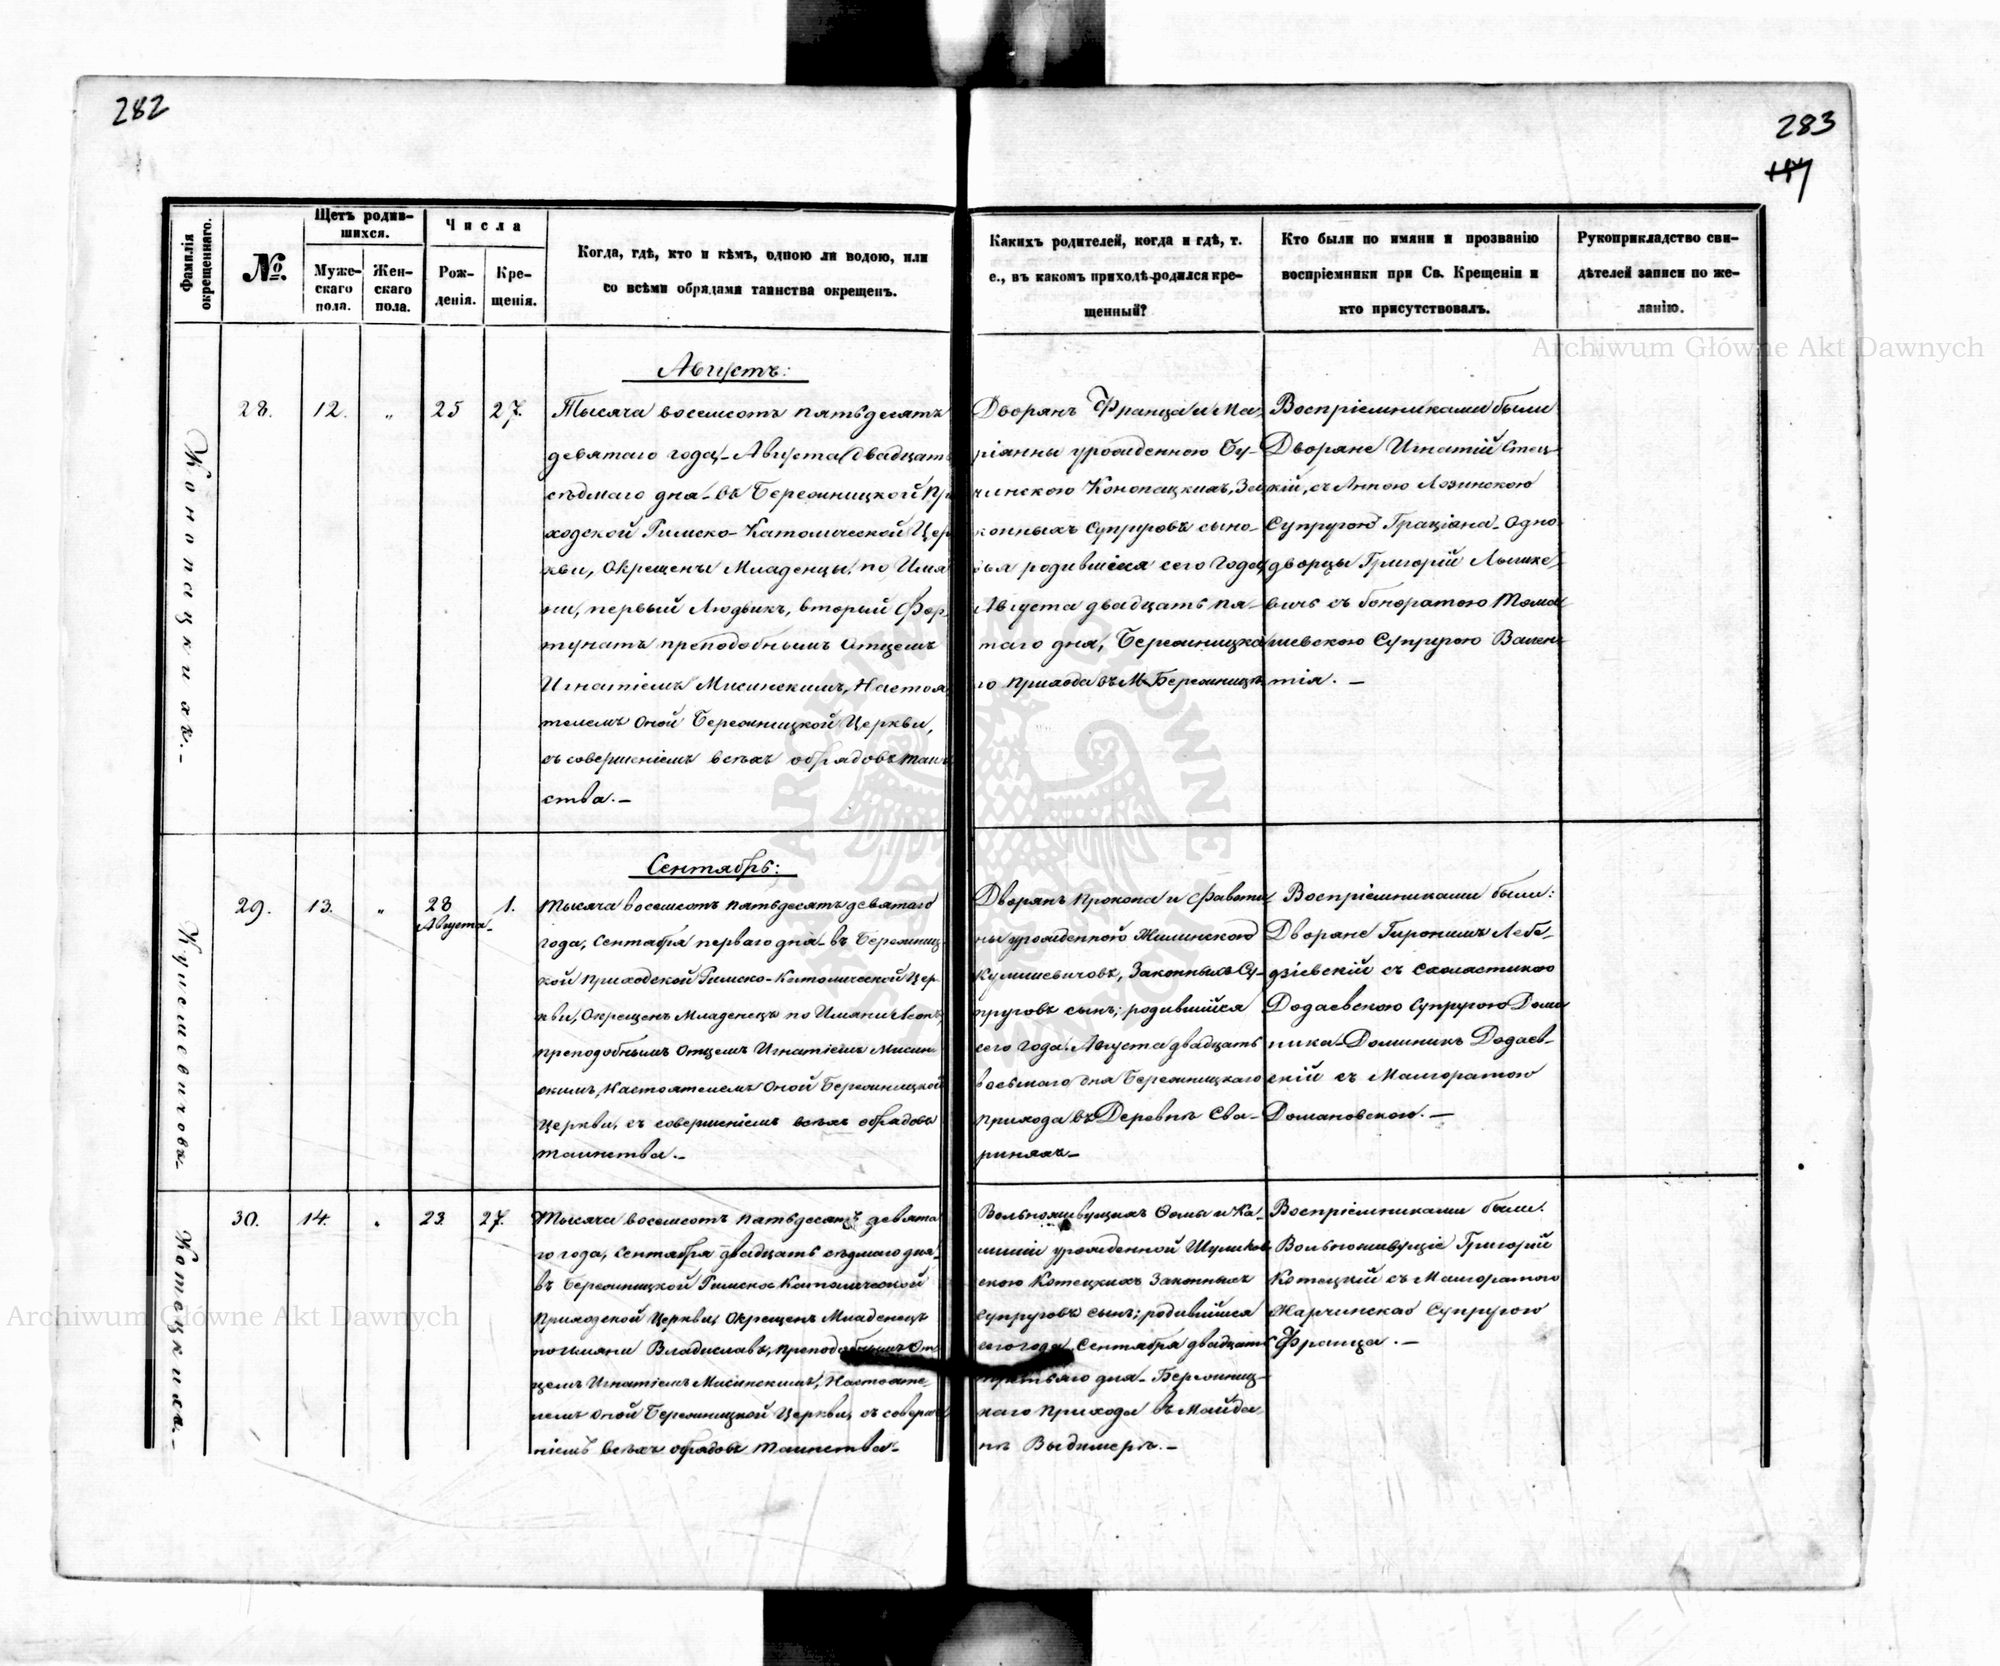 282
283
Фамилія окрещеннаго.
№.
Щетъ родив-
шихся.
Муже-
скаго
пола.
Жен-
скаго
пола.
Числа
Рож-
денія.
Кре-
щенія.
Когда, гдѣ, кто и кѣмъ, одною ли водою, или
со всѣми обрядами таинства окрещенъ.
Какихъ родителей, когда и гдѣ, т.
е., въ какомъ приходѣ родился кре-
щенный?
Кто были по имяни и прозванію
воспріемники при Св. Крещеніи и
кто присутствовалъ.
Рукоприкладство сви-
дѣтелей записи по же-
ланію.
Archiwum Główne Akt Dawnych
Августъ:
Конопацкихъ.-
28.
12.
"
25
27.
Тысяча восемсотъ пятьдесятъ
девятаго года, Августа двадцать
седмаго дня - въ Бережницкой При
ходской Римско-Католической Цер
кви, Окрещены Младенцы по Имя
ни, первый Людвикъ, вторый Фор
тунатъ преподобнымъ Отцемъ
Игнатіемъ Мисинскимъ, Настоя
телемъ Оной Бережницкой Церкви,
съ совершеніемъ всѣхъ обрядовъ таин
ства.-
Дворянъ Франца и Ма-
ріанны урожденною Бу-
чинскою Конопацкихъ, За
конныхъ Супруговъ сыно-
вья родившіеся сего Года
Августа двадцать пя-
таго дня, Бережницка
го прихода въ М. Бережницѣ
Воспріемниками были
Дворяне Игнатій Стец-
кій, съ Анною Лозинскою
Супругою Граціана - Одно-
дворцы Григорій
вичъ съ Гоноратою Тома
шевскою Супругою Вален-
тія. -
Сентябрь:
Кулишевичовъ.-
29.
13.
"
28
Августа
1.
Тысяча восемсотъ пятьдесятъ девятаго
года, Сентября перваго дня - въ Бережниц-
кой Приходской Римско-Католической Цер-
кви, Окрещенъ Младенецъ по Имяни Леонъ,
преподобнымъ Отцемъ Игнатіемъ Мисин-
скимъ, Настоятелемъ Оной Бережницкой
Церкви, съ совершеніемъ всѣхъ обрядовъ
таинства.-
Дворянъ Прокопа и Фавсти
ны урожденной Жилинскою
Кулишевичовъ, Законныхъ Су-
пруговъ сынъ; родившійся
сего года Августа двадцать
восьмаго дня Бережницкаго
прихода въ Деревнѣ Сва-
риняхъ-
Воспріемниками были:
Дворяне Гиронимъ Лебе-
дзіевскій съ Схоластикою
Додаевскою Супругою Доми
ника - Доминикъ Додаев-
скій съ Малгоратою
Домановскою. -
Котецкихъ.-
30.
14.
"
23
27.
Тысяча восемсотъ пятьдесятъ девята
го года, Сентября двадцать седмаго дня,
въ Бережницкой Римско Католической
Приходской Церкви, Окрещенъ Младенецъ
по имяни Владиславъ, преподобнымъ От
цемъ Игнатіемъ Мисинскимъ, Настояте-
лемъ Оной Бережницкой Церкви, съ соверше
ніемъ всѣхъ обрядовъ таинства-
Вольноживущихъ Ѳомы и Ка-
миліи урожденной Шулков
скою Котецкихъ Законныхъ
Супруговъ сынъ; родившійся
сего года, Сентября двадцать
третьяго дня - Бережниц-
каго прихода въ Майда
нѣ Выдымеръ.-
Воспріемниками были:
Вольноживущіе Григорій
Котецкій съ Малгоратою
Харчинскаю Супругою
Франца. -
Archiwum Główne Akt Dawnych